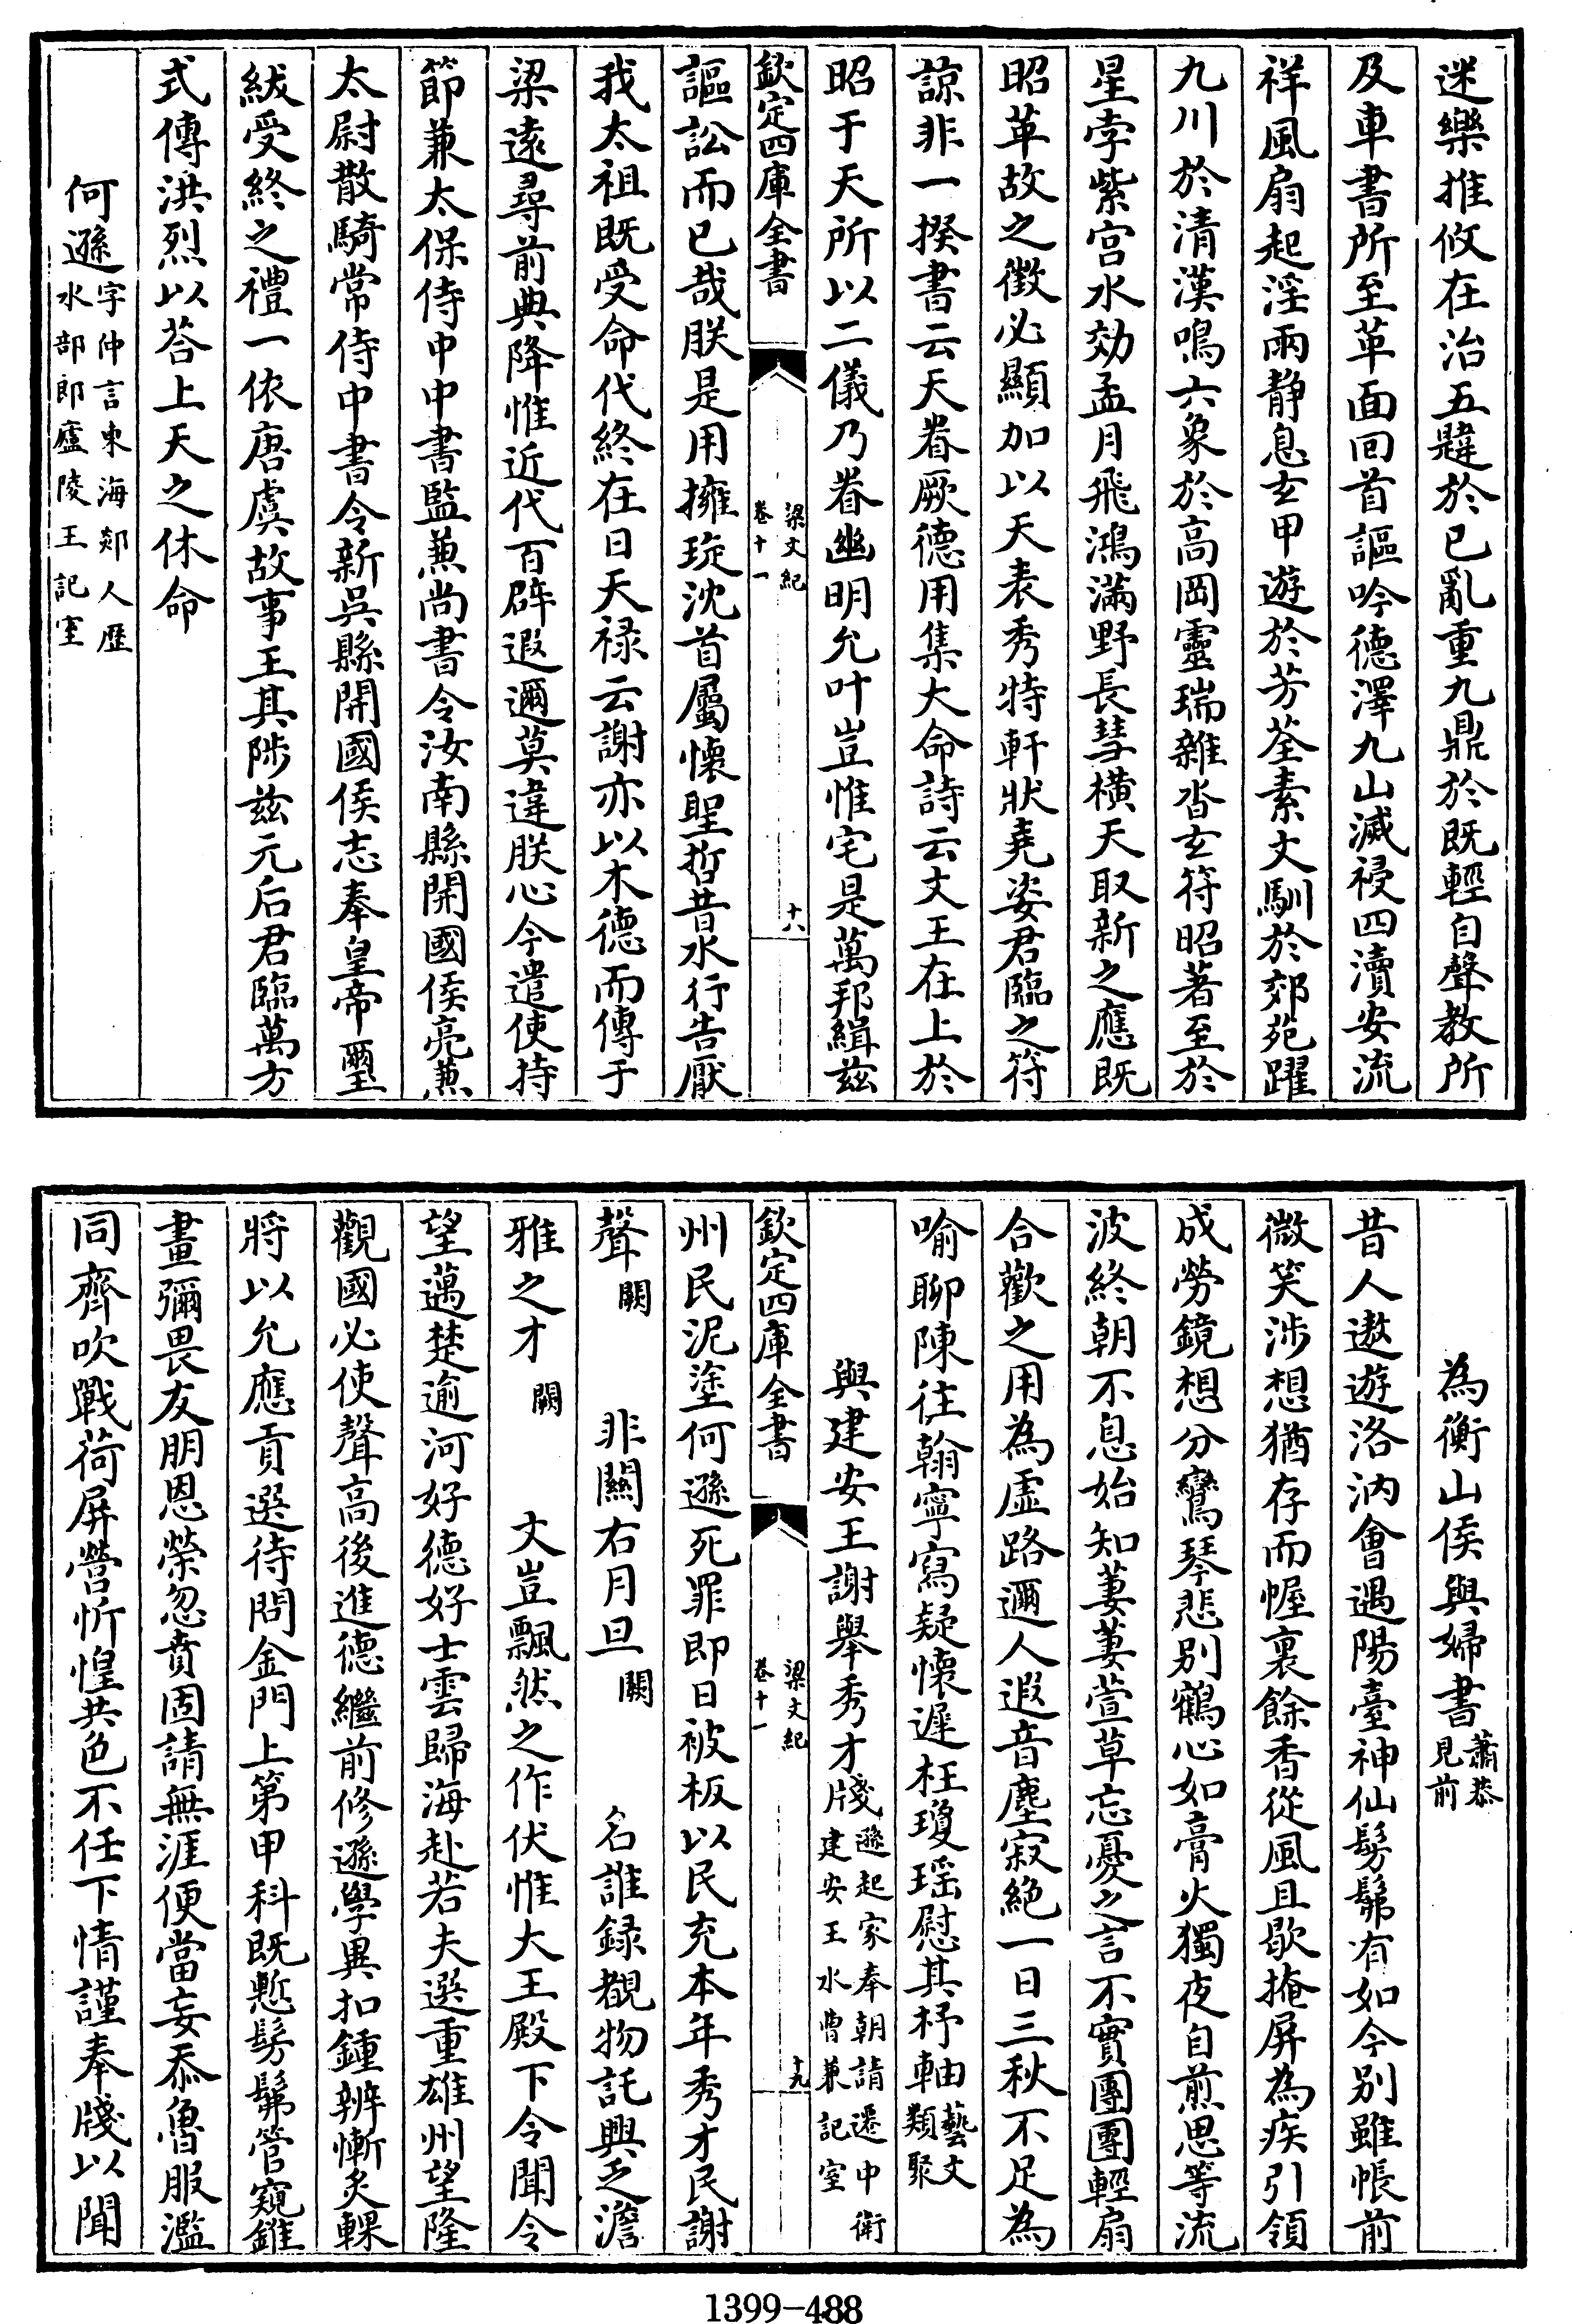 迷樂推攸在治五韙於已亂重九鼎於既輕自聲教所
及車書所至革面回首謳吟德澤九山滅祲四瀆安流
祥風扇起淫雨靜息玄甲遊於芳荃素文馴於郊苑躍
九川於清漢鳴六象於高岡靈瑞雜沓玄符昭著至於
星孛紫宫水効孟月飛鴻滿野長彗橫天取新之應既
昭革故之徵必顯加以天表秀特軒狀堯姿君臨之符
諒非一揆書云天眷厥德用集大命詩云文王在上於
昭于天所以二儀乃眷幽明允叶豈惟宅是萬邦緝兹
欽定四庫全書
梁文紀
卷十一
十八
謳訟而已哉朕是用擁琁沈首屬懷聖哲昔水行告厭
我太祖既受命代終在日天禄云謝亦以木德而傳于
梁遠尋前典降惟近代百辟遐邇莫違朕心今遣使持
節兼太保侍中中書監兼尚書令汝南縣開國侯亮兼
太尉散騎常侍中書令新吳縣開國侯志奉皇帝璽
紱受終之禮一依唐虞故事王其陟兹元后君臨萬方
式傳洪烈以荅上天之休命
何遜字仲言東海郯人歷
水部郎廬陵王記室
為衡山侯與婦書蕭恭
見前
昔人遨遊洛汭會遇陽臺神仙髣髴有如今别雖帳前
微笑涉想猶存而幄裏餘香從風且歇掩屏為疾引領
成勞鏡想分鸞琴悲别鶴心如膏火獨夜自煎思等流
波終朝不息始知萋萋萱草忘憂之言不實團團輕扇
合歡之用為虛路邇人遐音塵寂絶一日三秋不足為
喻聊陳往翰寧寫疑懷遲枉瓊瑶慰其杼軸藝文
類聚
與建安王謝舉秀才牋遜起家奉朝請遷中衛
建安王水曹兼記室
欽定四庫全書
梁文紀
卷十一
十九
州民泥塗何遜死罪即日被板以民充本年秀才民謝
聲闕 非關右月旦闕 名誰録覩物託興乏澹
雅之才闕 文豈飄然之作伏惟大王殿下令聞令
望邁楚逾河好德好士雲歸海赴若夫選重雄州望隆
觀國必使聲高後進德繼前修遜學異扣鍾辨慚炙輠
將以允應貢選待問金門上第甲科既慙髣髴管窺錐
畫彌畏友朋恩榮忽賁固請無涯便當妄忝魯服濫
同齊吹戰荷屏營忻惶共色不任下情謹奉牋以聞
1399-488